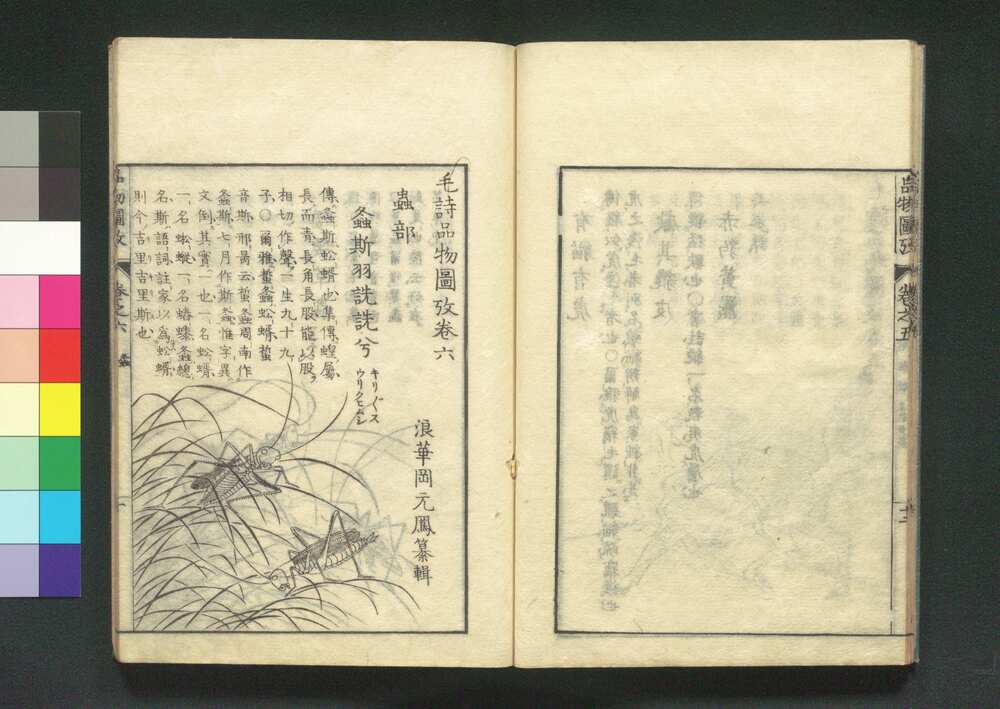 毛詩品物圖攷卷六
浪華岡元鳳纂輯
蟲部
螽斯羽詵詵兮
キリ〴〵ス
ウリクヒムシ
傳螽斯蚣蝑也集傳蝗屬
長而青長角長股能以股
相切作聲一生九十九
子〇爾雅蜇螽蚣蝑蜇
音斯邢昺云蜇螽周南作
螽斯七月作斯螽惟字異
文倒其實一也一名蚣蝑
一名蜙蝑一名蝽螽螽總
名斯語詞註家以為蚣蝑
則今吉里吉里斯也
品物圖攷
卷之六
品物圖攷
卷之五
十二